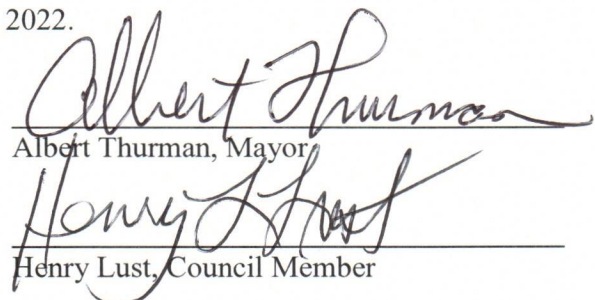 2022.
Albert Thurman
Albert Thurman, Mayor
Henry L Lust
Henry Lust, Council Member